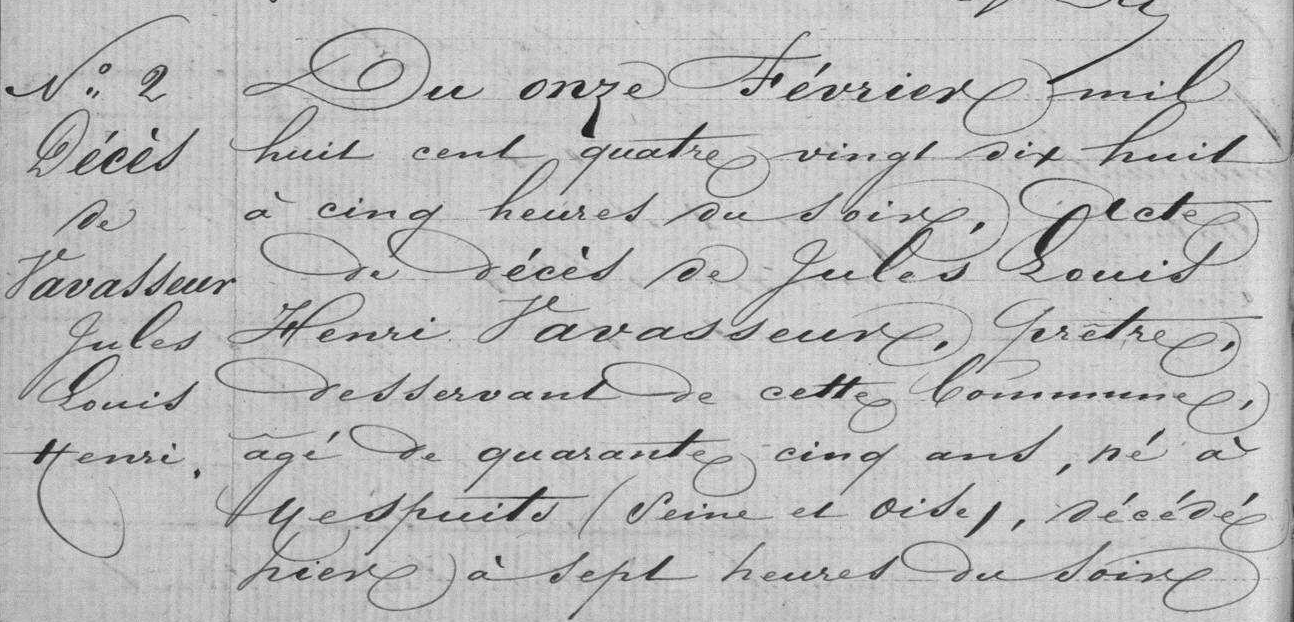 N° 2
Décès
de
Vavasseur
Jules
Louis
Henri.
Du onze Février mil
huit cent quatre vingt dix huit
à cinq heures du soir, Acte
de décès de Jules Louis
Henri Vavasseur, prêtre,
desservant de cette Commune,
âgé de quarante cinq ans, né à
(Seine et Oise), décédé
hier à sept heures du soir